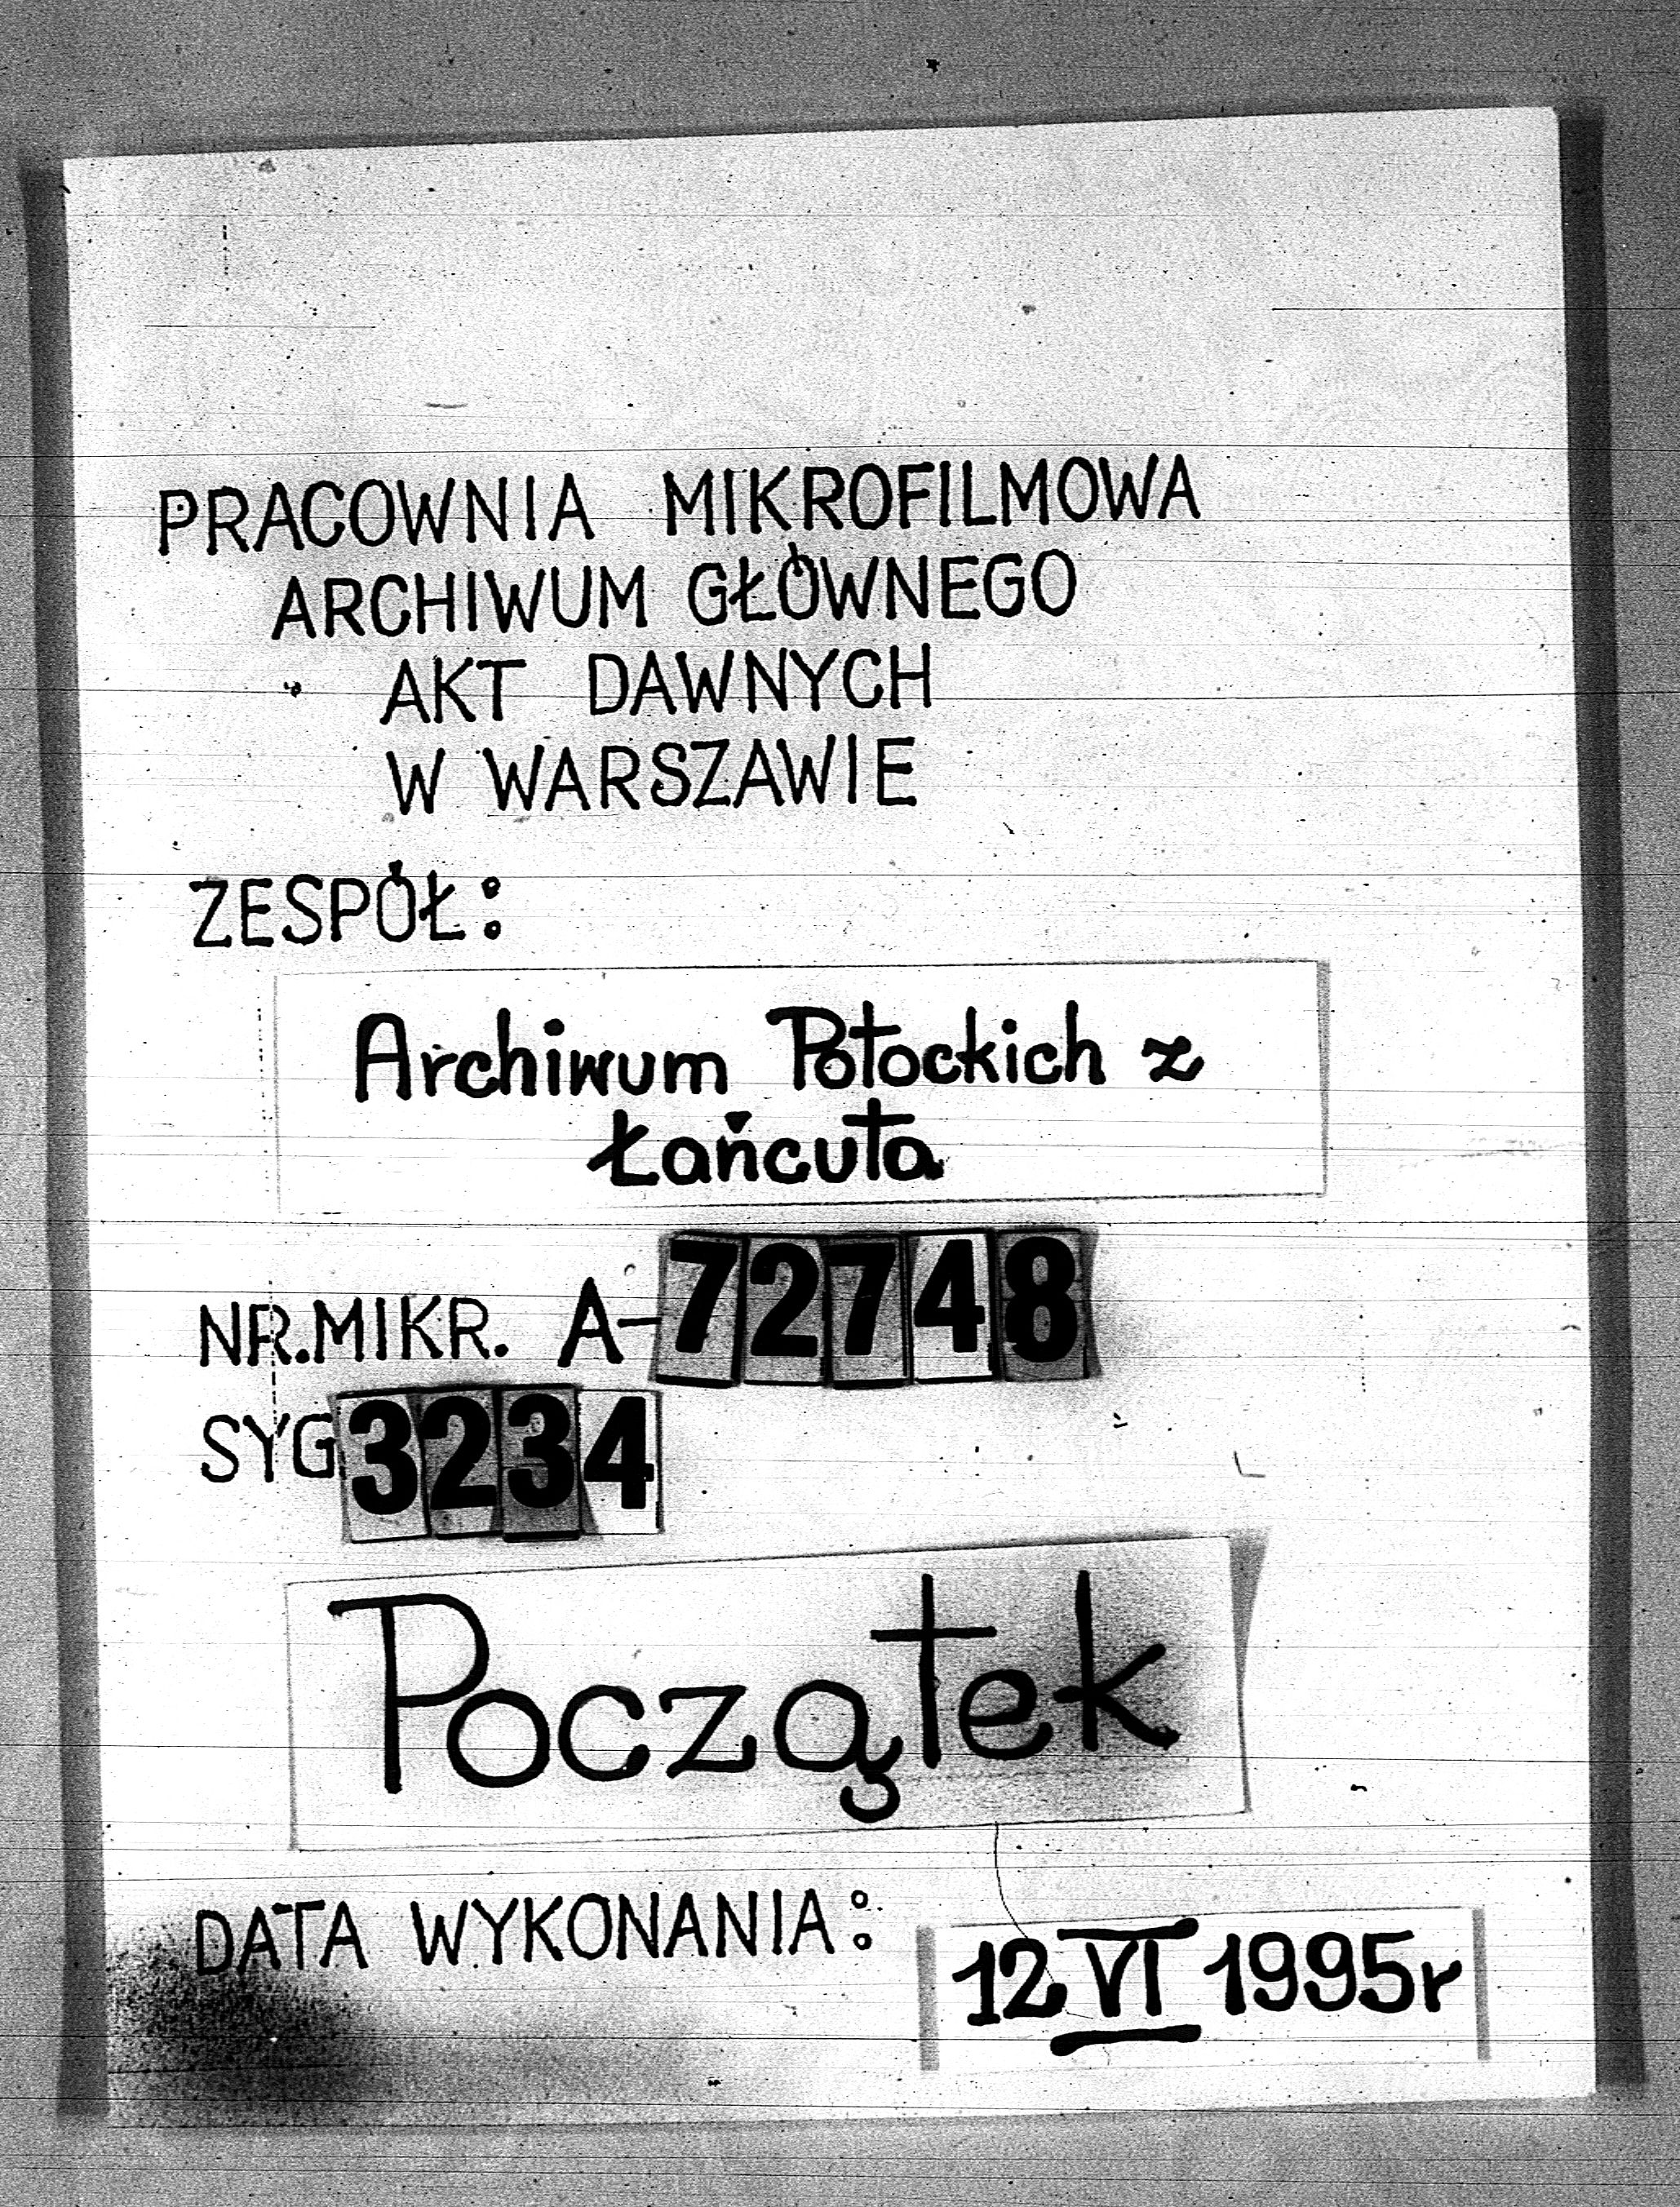 PRACOWNIA MIKROFILMOWA
ARCHIWUM GŁÓWNEGO
AKT DAWNYCH
W WARSZAWIE
ZESPÓŁ:
Archiwum Potockich z
Łańcuta
NR.MIKR. A-72748
SYG 3234
Początek
DATA WYKONANIA: 12 VI 1995r